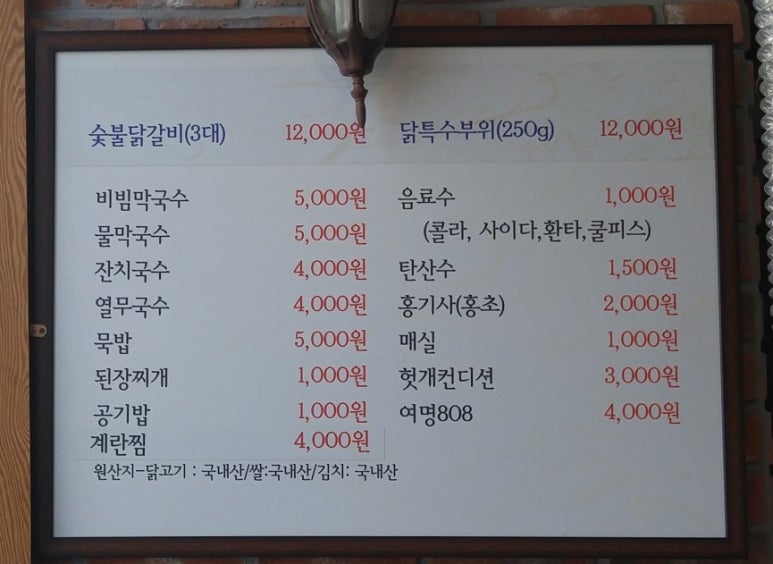 숯불닭갈비(3대) 12,000원
비빔막국수 5,000원
물막국수 5,000원
잔치국수 4,000원
열무국수 4,000원
묵밥 5,000원
된장찌개 1,000원
공기밥 1,000원
계란찜 4,000원
원산지-닭고기 : 국내산/쌀:국내산/김치: 국내산
닭특수부위(250g) 12,000원
음료수 1,000원
(콜라, 사이다,환타,쿨피스)
탄산수 1,500원
홍기사(홍초) 2,000원
매실 1,000원
헛개컨디션 3,000원
여명808 4,000원